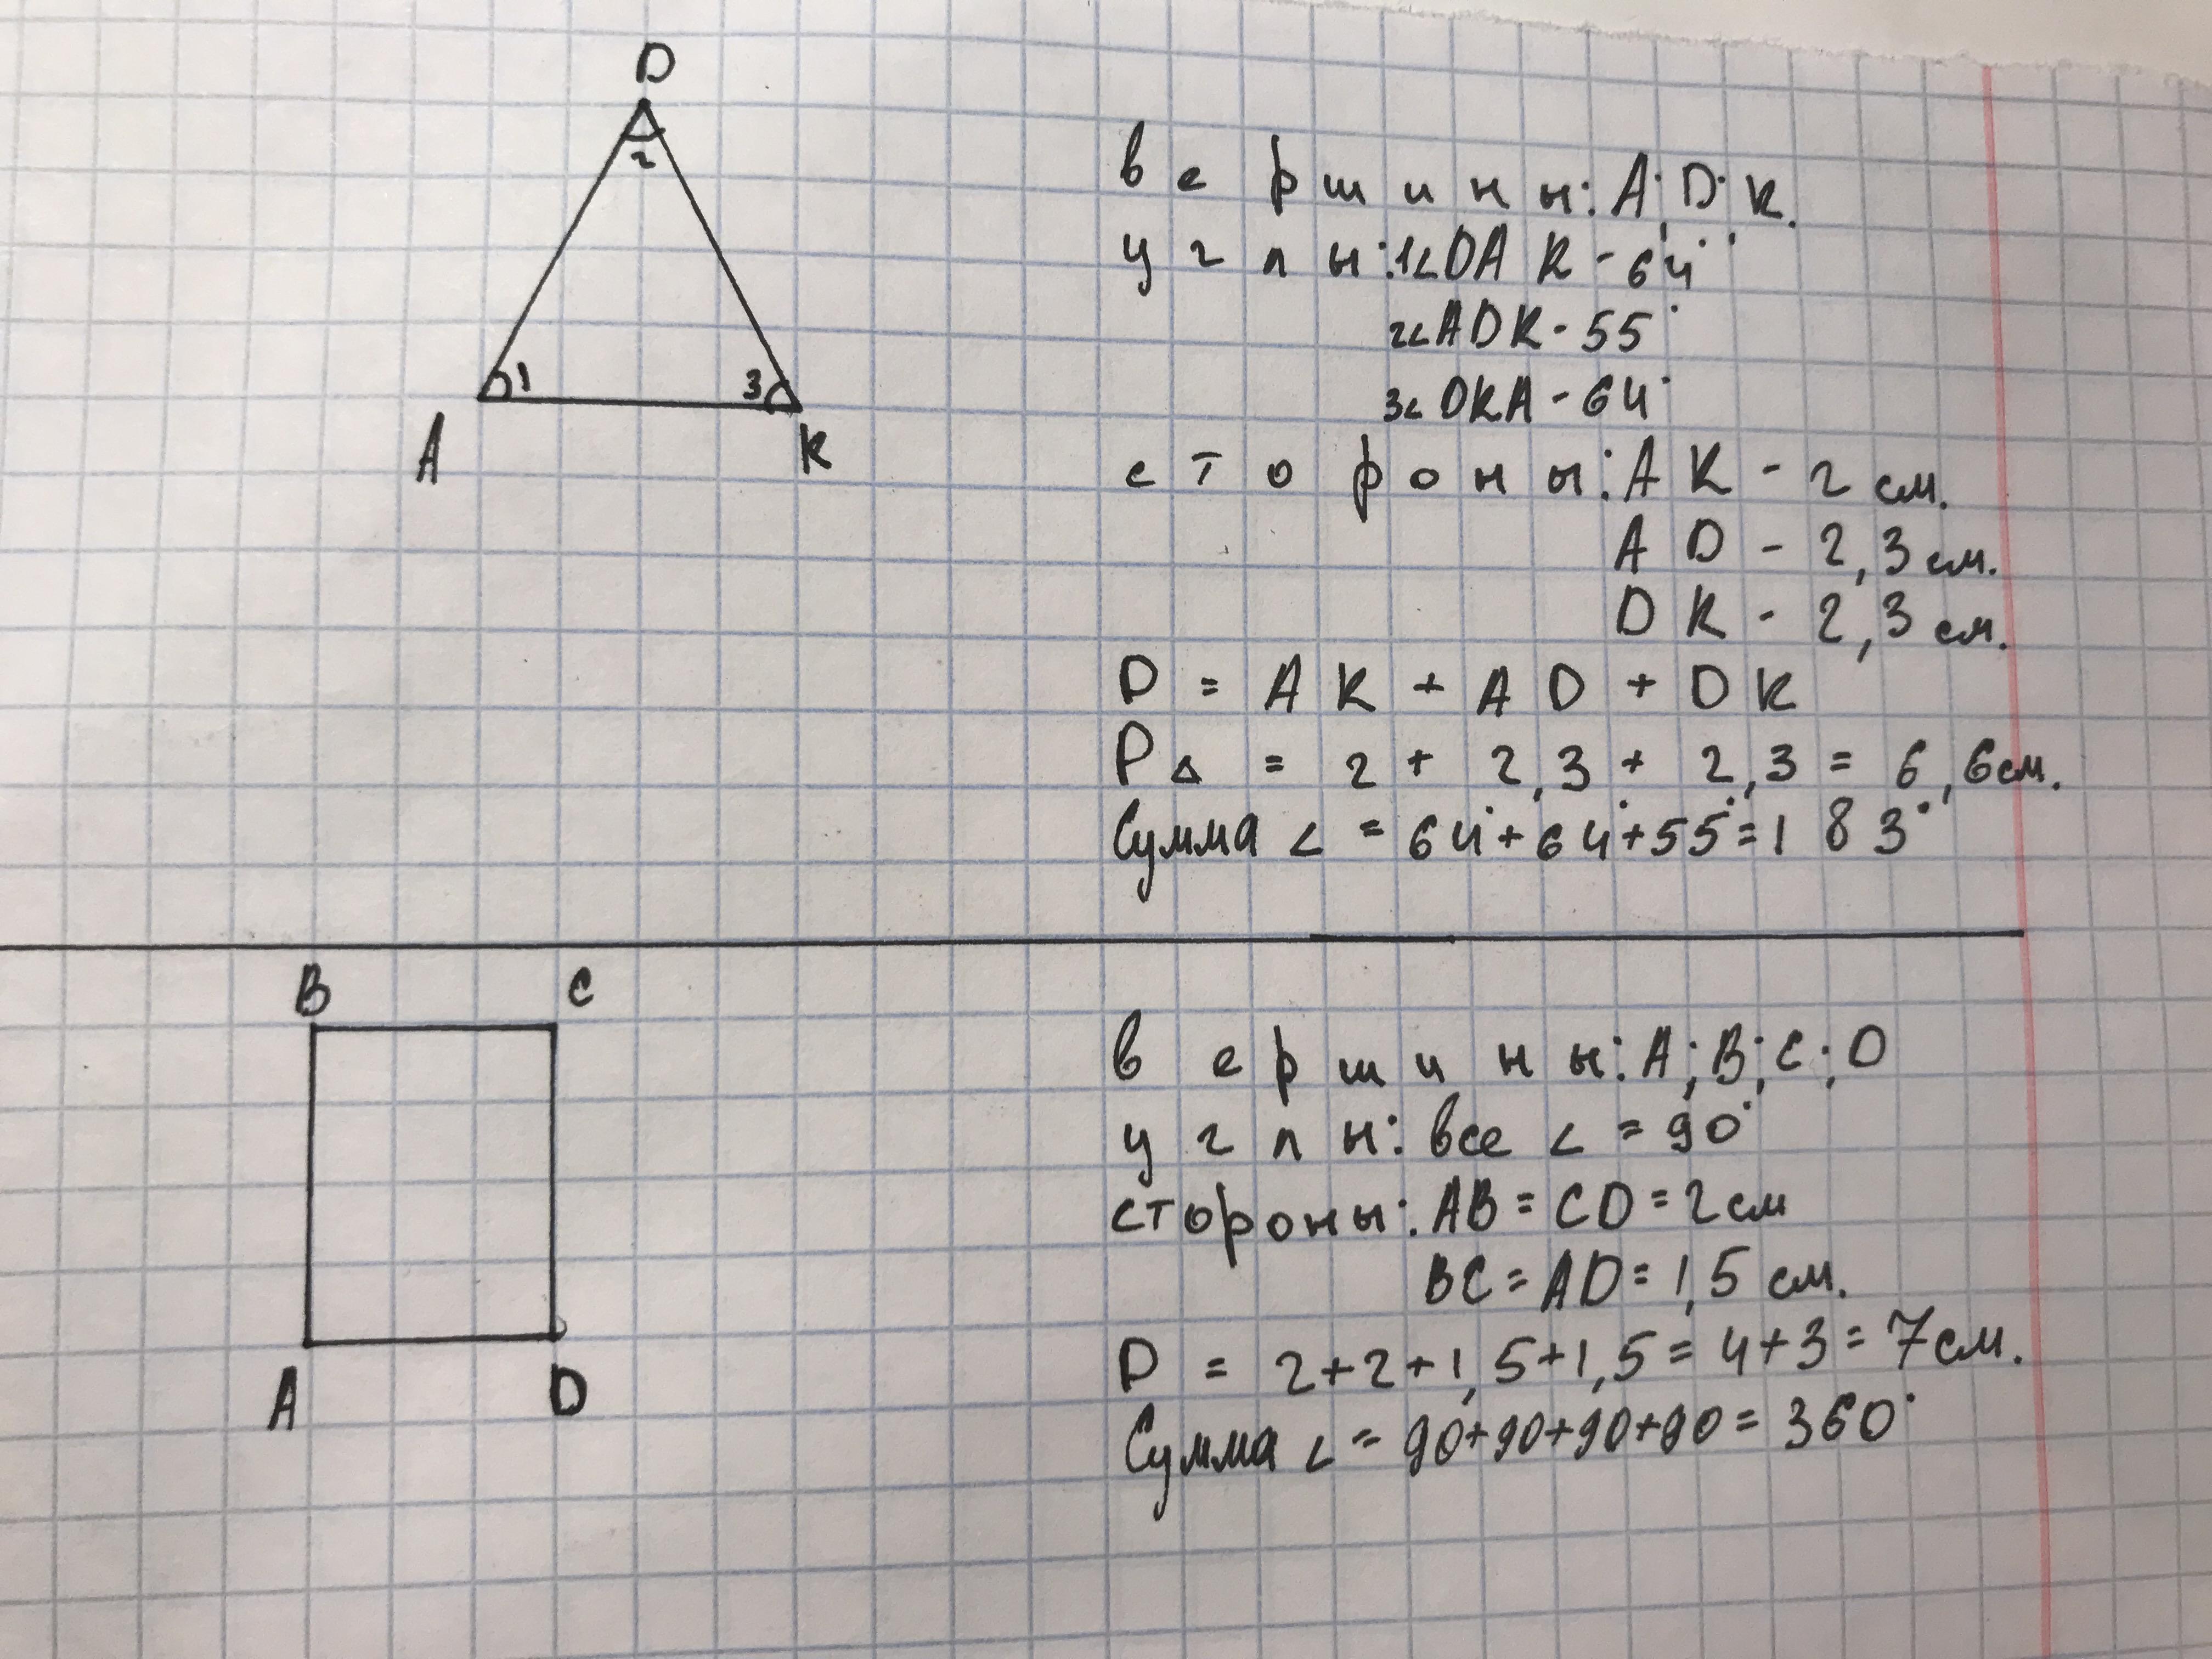 D
2
1
3
A
K
вершины: A; D; K.
углы: 1∠DAK - 64°
2∠ADK - 55°
3∠DKA - 64°
стороны: AK - 2 см.
AD - 2,3 см.
DK - 2,3 см.
P = AK + AD + DK
P△ = 2 + 2,3 + 2,3 = 6,6 см.
Сумма ∠ = 64° + 64° + 55° = 183°
B
C
A
D
вершины: A; B; C; D
углы: все ∠ = 90°
стороны: AB = CD = 2 см
BC = AD = 1,5 см.
P = 2+2+1,5+1,5 = 4+3 = 7 см.
Сумма ∠ = 90+90+90+90 = 360°